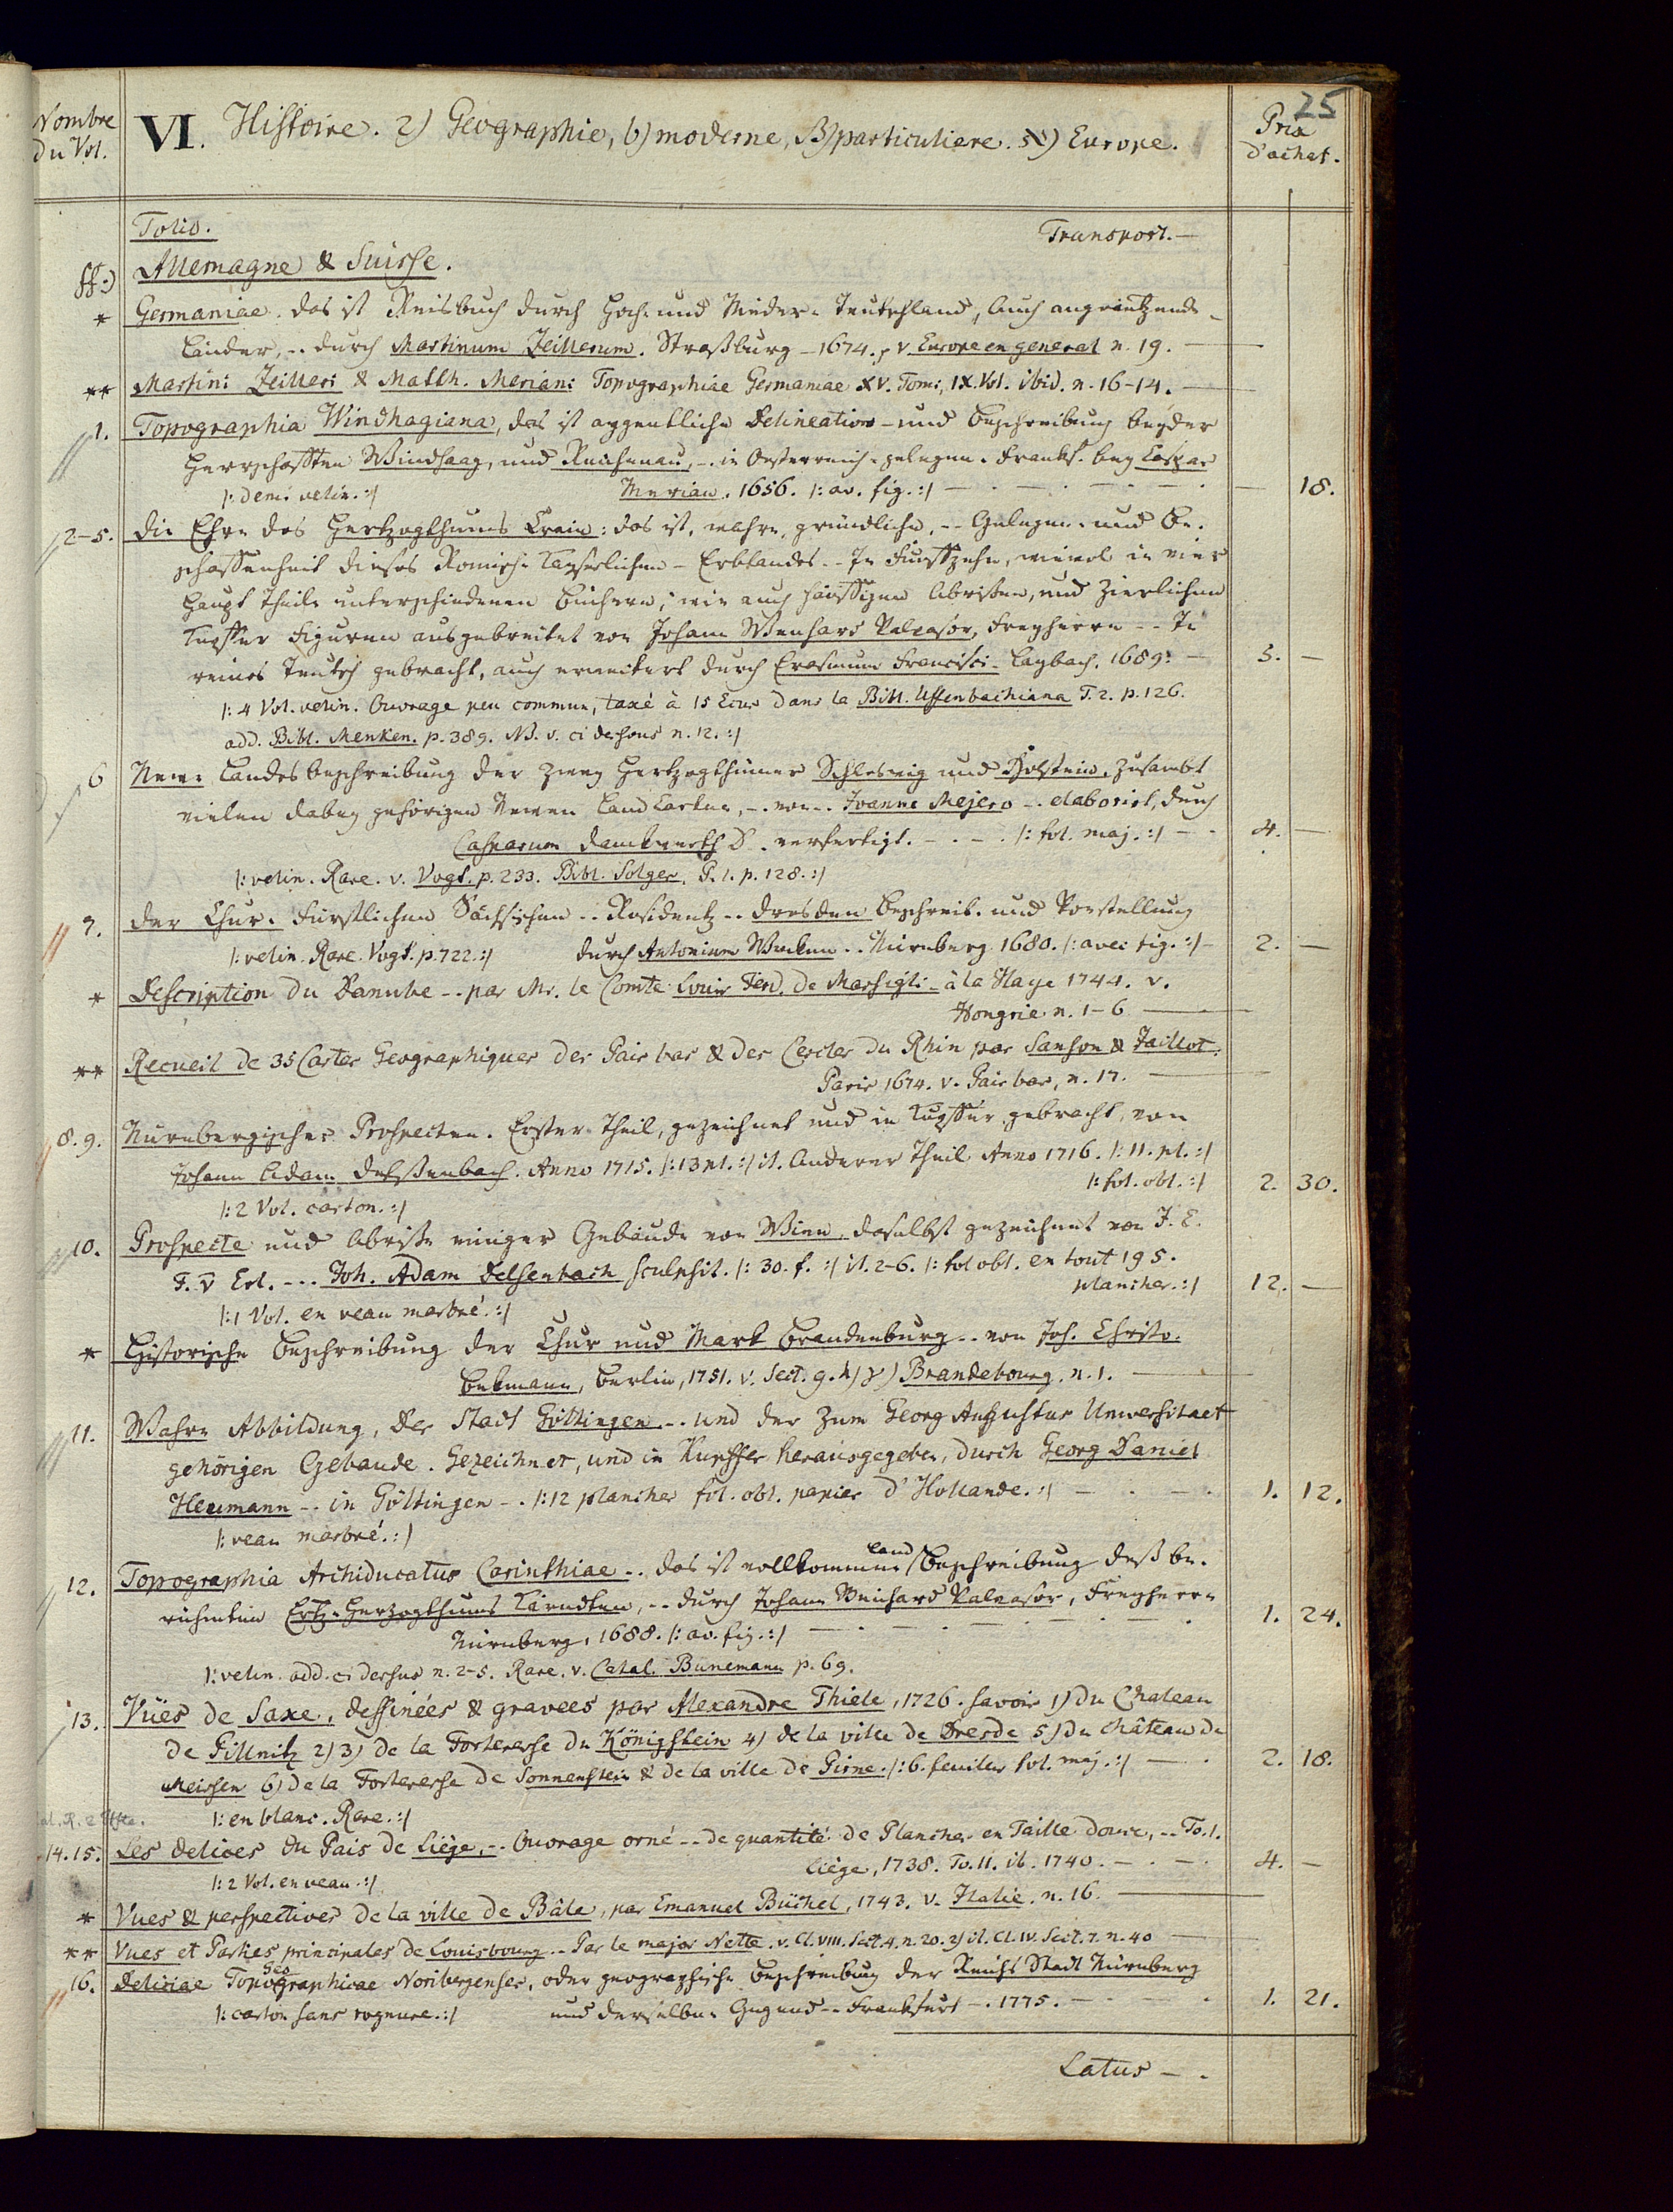 25
Nombre
du Vol.
VI. Histoire. 2) Geographie, b) moderne, B) particuliere. א) Europe.
Prix
d'achat.
Folio. Transport. —
ff:) Allemagne & Suisse.
* Germaniae. das ist Reisbuch durch Hoch- und Nieder-Teutschland, auch angräntzende
Länder, -- durch Martinum Zeillerum. Straßburg - 1674. v. Europe en general n. 19. —
** Martini Zeilleri & Matth. Meriani Topographiae Germaniae XV. Tomi, IX. Vol. ibid. n. 16-14. —
1. Topographia Windhagiana, das ist aygentliche Delineation - und Beschreibung beyder
Herrschafften Windhaag, und Reichenau, -- in Oesterreich gelegen. Franckf. bey Caspar
/: demi velin. :/ Merian. 1656. /: av. fig. :/ — 18.
2-5. Die Ehre des Hertzogthums Crain: das ist, wahre, gründliche, -- Gelegen- und Be-
schaffenheit dieses Römisch-Kayserlichen - Erblandes -- In Funffzehn, wiewol in vier
Haupt Theile unterschiedenen Büchern, wie auch häuffigen Abrissen, und zierlichen
Kupffer Figuren ausgebreitet von Johann Weichard Valvasor, Freyherrn -- In
reines Teutsch gebracht, auch erweitert durch Erasmum Francisci - Laybach. 1689. — 5. —
/: 4 Vol. velin. Ouvrage peu commun, taxé à 15 Ecus dans la Bibl. Uffenbachiana T. 2. p. 126.
add. Bibl. Menken. p. 389. NB. v. ci dessous n. 12. :/
6 Newe Landesbeschreibung der zwey Hertzogthümer Schleswig und Holstein, zusambt
vielen dabey gehörigen Newen LandCarten, -- von -- Joanne Mejero -- elaborirt, durch
Casparum Danckwerth D. verfertigt. — /: fol. maj. :/ — 4. —
/: velin. Rare. v. Vogt. p. 233. Bibl. Solger. P. 1. p. 128. :/
7. Der Chur-Fürstlichen Sächsischen -- Residentz -- Dresden Beschreib- und Vorstellung
/: velin. Rare. Vogt. p. 722. :/ durch Antonium Wecken -- Nürnberg 1680. /: avec fig. :/ — 2. —
* Description du Danube -- par Mr. le Comte Louis Ferd. de Marsigli - à la Haye 1744. v.
Hongrie n. 1-6 —
** Recueil de 35 Cartes Geographiques des Pais bas & des Cercles du Rhin par Sanson & Jaillot.
Paris 1674. v. Pais bas, n. 17. —
8. 9. Nürnbergischer Prospecten. Erster Theil, gezeichnet und in Kupffer gebracht, von
Johann Adam Delsenbach. Anno 1715. /: 13 pl. :/ it. Anderer Theil Anno 1716. /: 11. pl. :/
/: 2 Vol. carton. :/ /: fol. obl. :/ 2. 30.
10. Prospecte und Abrisse einiger Gebäude von Wien, daselbst gezeichnet von J. E.
F. v. Erl. --- Joh. Adam Delsenbach sculpsit. /: 30. f. :/ it. 2-6. /: fol obl. en tout 195.
/: 1 Vol. en veau marbré. :/ planches. :/ 12. —
* Historische Beschreibung der Chur und Mark Brandenburg -- von Joh. Christo.
Bekmann, Berlin, 1751. v. Sect. 9. h) γ) Brandebourg. n. 1. —
11. Wahre Abbildung, der Stadt Göttingen -- und der zum Georg Augustus Universitaet
gehörigen Gebäude. Gezeichnet, und in Kupffer herausgegeben, durch Georg Daniel
Heumann -- in Göttingen -- /: 12 planches fol. obl. papier d'Hollande. :/ — 1. 12.
/: veau marbré. :/
12. Topographia Archiducatus Carinthiae -- das ist vollkommne Land Beschreibung deß be-
rühmten Ertz-Herzogthums Kärndten, -- durch Johann Weichard Valvasor, Freyherrn
Nürnberg, 1688. /: av. fig. :/ — 1. 24.
/: velin. add. ci dessus n. 2-5. Rare. v. Catal. Bunemann p. 69.
13. Vües de Saxe, dessinées & gravees par Alexandre Thiele, 1726. savoir 1) du Chateau
de Pillnitz 2) 3) de la Forteresse du Königstein 4) de la ville de Dresde 5) du château de
Meissen 6) de la Forteresse de Sonnenstein & de la ville de Pirne. /: 6. feuilles fol. maj. :/ — 2. 18.
/: en blanc. Rare. :/
14. 15. Les delices du Pais de Liège, -- Ouvrage orné -- de quantité de Planches en Taille douce, -- To. 1.
/: 2 Vol. en veau. :/ Liège, 1738. To. II. ib. 1740. — 4. —
* Vues & perspectives de la ville de Bâle, par Emanuel Büchel, 1743. v. Italie. n. 16. —
** Vues et Parties principales de Louisbourg -- Par le major Nette. v. Cl. VIII. Sect. 4. n. 20. 2) it. Cl. IV. Sect. 7. n. 40 —
16. Deliciae Topo Geo graphicae Noribergenses, oder geographische Beschreibung der Reichs Stadt Nürnberg
/: carton sans rognure. :/ und derselben Gegend -- Franckfurt -- 1775. — 1. 21.
Latus —